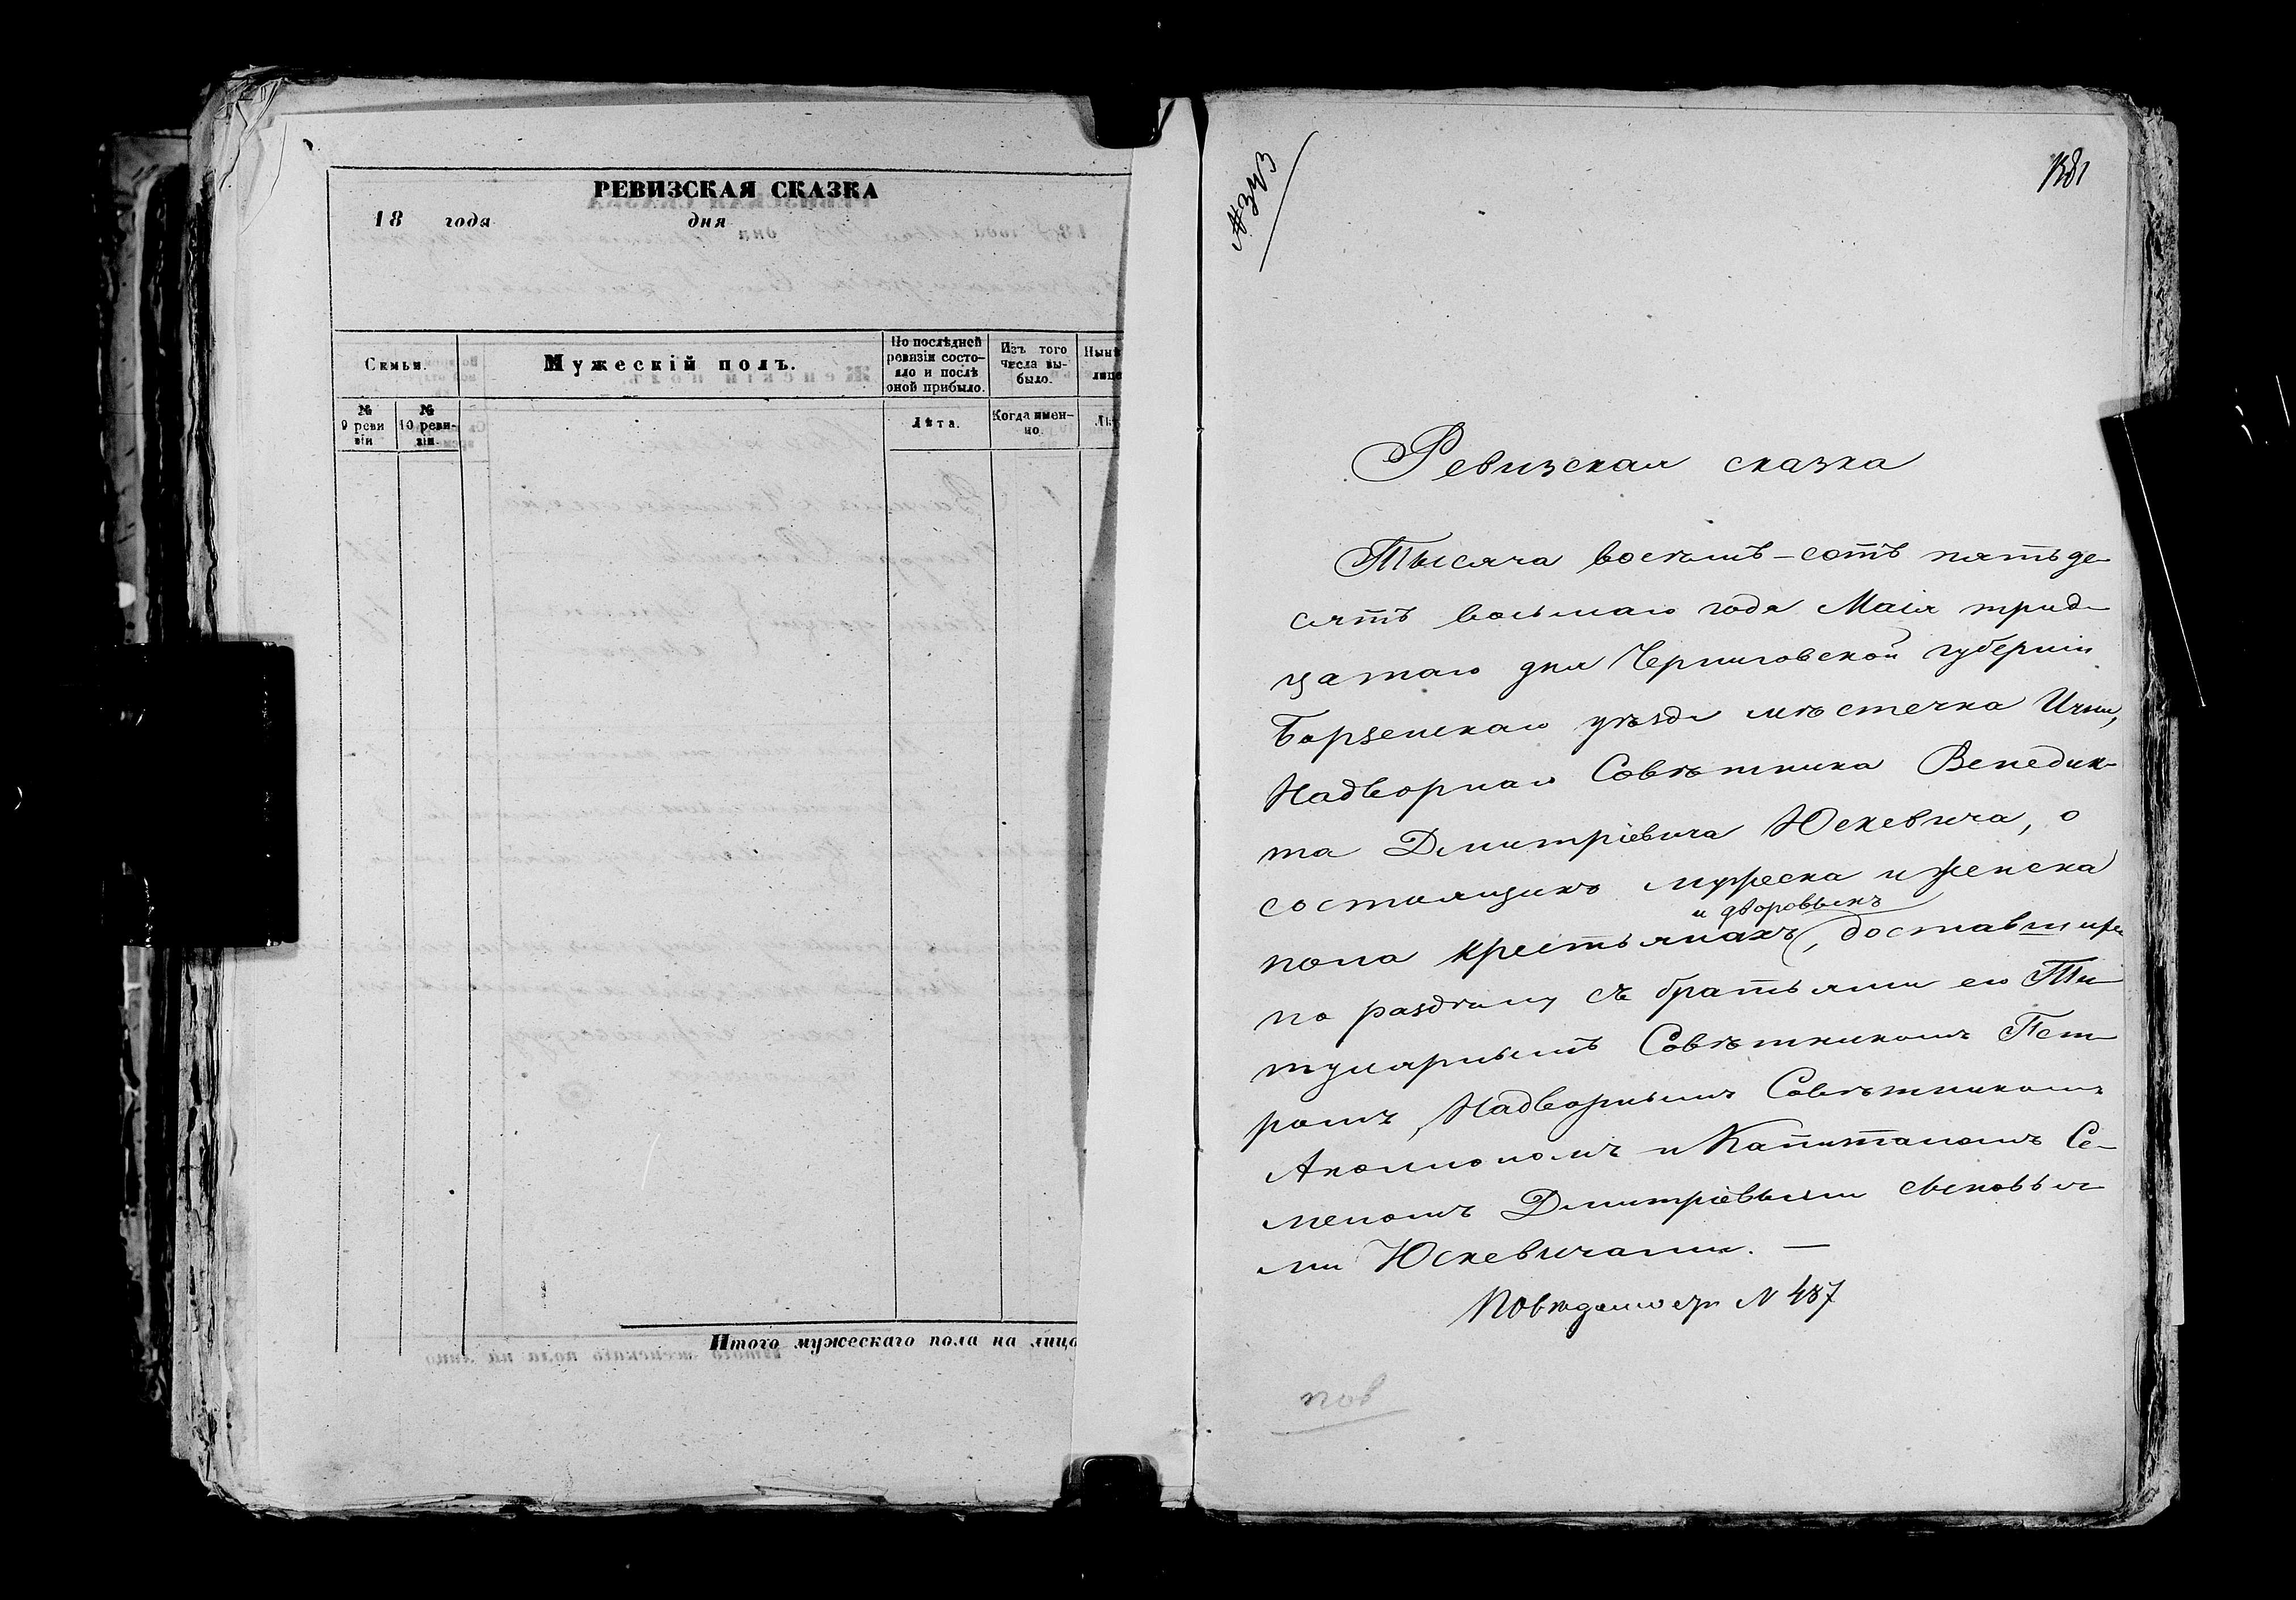 РЕВИЗСКАЯ СКАЗКА
18 года дня
Семьи.
Мужескій полъ.
По послѣдней
ревизіи состо-
яло и послѣ
оной прибыло.
Изъ того
числа вы-
было.
Нынѣ
лице
№
9 реви
зіи
№
10 реви-
зіи.
Лѣта.
Когда имен-
но.
Лѣ
Итого мужескаго пола на лицо
№ 343
Ревизская сказка
Тысяча восемъ-сотъ пятьде-
сятъ восьмаго года Маія трид-
цатаго дня Черниговской губерніи
Борзенскаго уѣзда мѣстечка Ични,
Надворнаго Совѣтника Венедик-
та Дмитріевича Юскевича, о
состоящихъ мужеска и женска
и дворовыхъ
пола крестьянахъ, доставши
по раздѣлу съ братьями его Ти-
тулярнымъ Совѣтникомъ Пет-
ромъ, Надворнымъ Совѣтникомъ
Аполлономъ и Капитаномъ Се-
меномъ Дмитріевыми сыновья-
ми Юскевичами. —
№ 487
пов